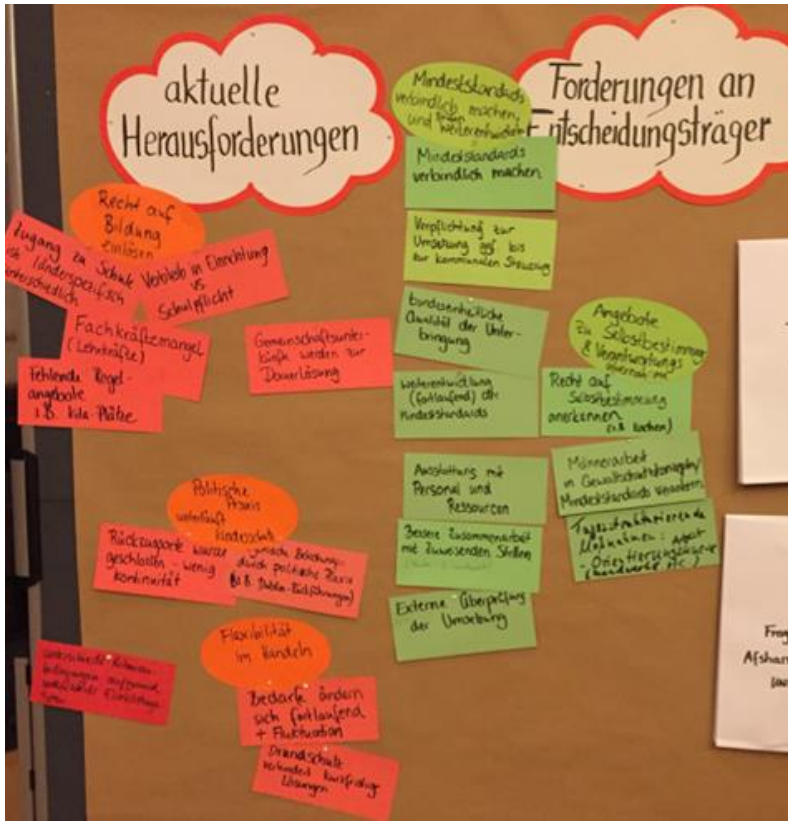 aktuelle
Herausforderungen
Recht auf
Bildung
einlösen
Zugang zu Schule
länderspezifisch
unterschiedlich
Verbleib in Einrichtung
vs
Schulpflicht
Fachkräftemangel
(Lehrkräfte)
fehlende Regel-
angebote
z.B. Kita-Plätze
Gemeinschaftsunter-
künfte werden zur
Dauerlösung
Politische
Praxis
unterläuft
Kindeschutz
Rückzugsorte wurde
geschlossen - wenig
Kontinuität
durch politische Praxis
(z.B. Dublin-Rückführungen)
Flexibilität
im Handeln
Bedarfe ändern
sich fortlaufend
+ Fluktuation
Brandschutz
verhindert kurzfristige
Lösungen
Mindeststandards
verbindlich machen,
und weiterentwickeln
Forderungen an
Entscheidungsträger
Mindeststandards
verbindlich machen
Verpflichtung zur
Umsetzung ggf bis
zur kommunalen Steuerung
bundeseinheitliche
Qualität der Unter-
bringung
Weiterentwicklung
(fortlaufend) der
Mindeststandards
Ausstattung mit
Personal und
Ressourcen
Bessere Zusammenarbeit
mit zuweisenden Stellen
Externe Überprüfung
der Umsetzung
Angebote
zu Selbstbestimmung
& Verantwortungs
übernahme
Recht auf
Selbstbestimmung
anerkennen
(z.B. kochen)
Männerarbeit
in Gewaltschutzkonzepten/
Mindeststandards verankern
Tagesstrukturierende
Maßnahmen: Arbeit